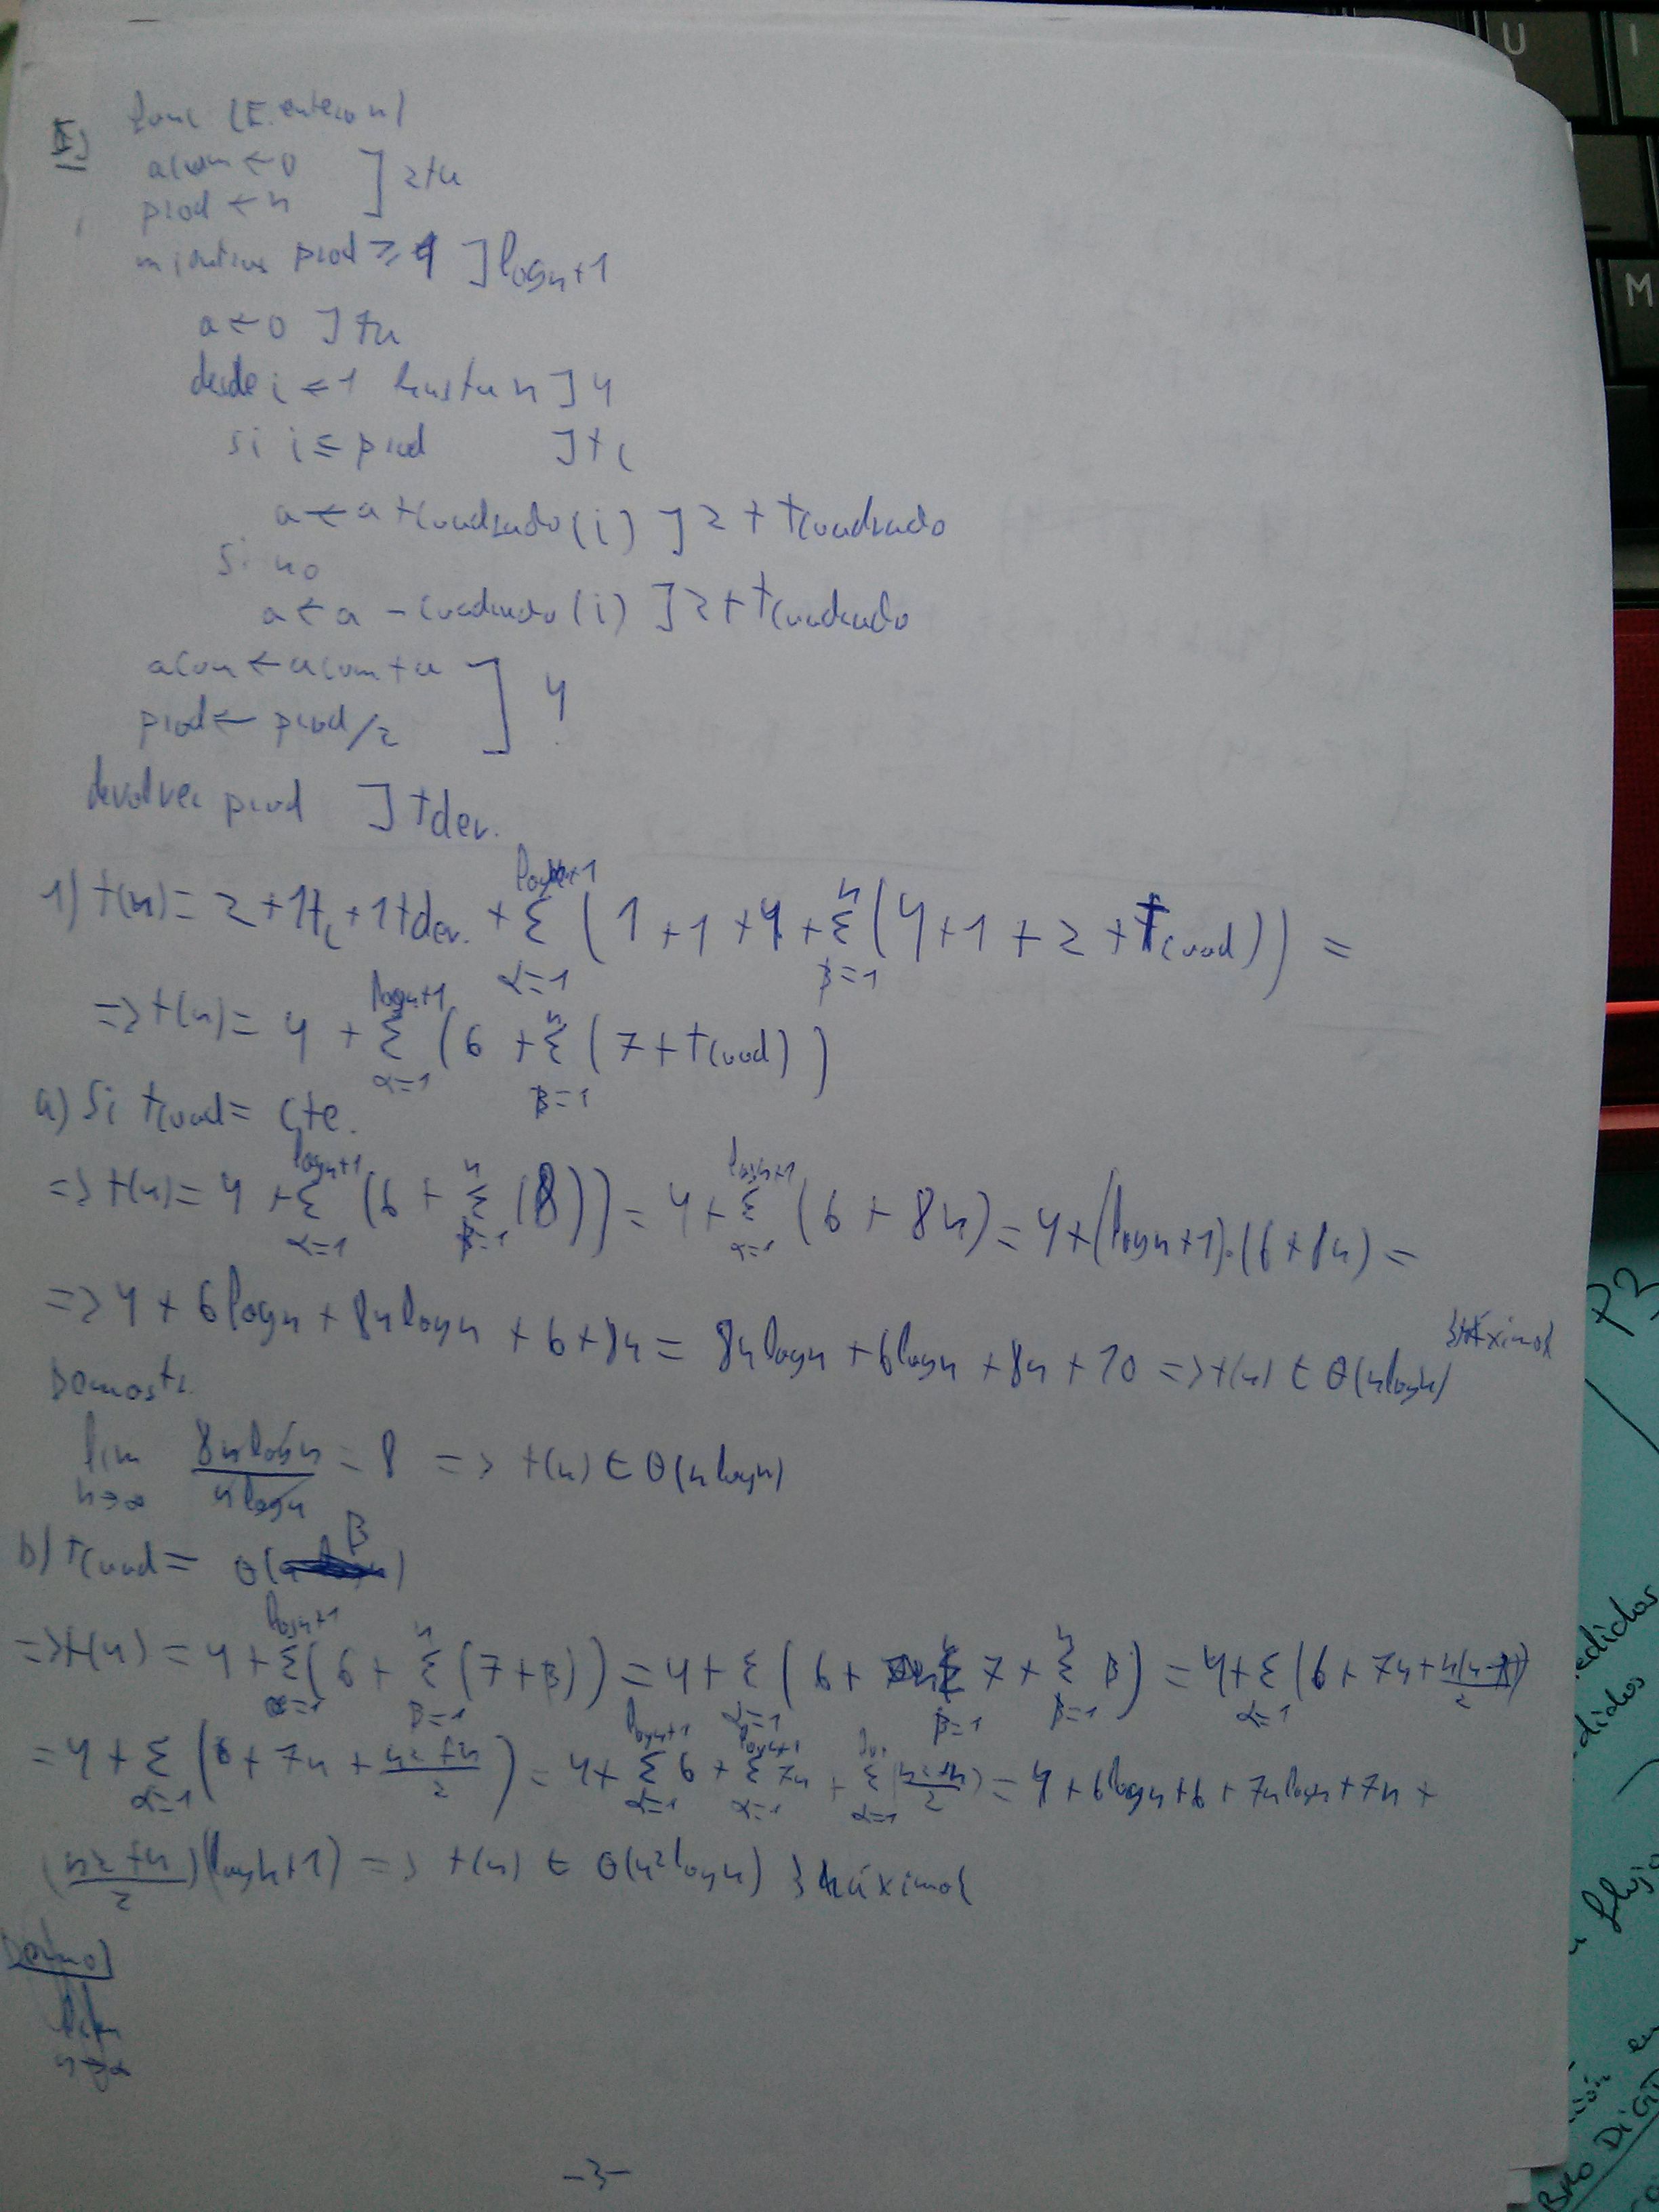 func (E. entero n)
acum ← 0 ] 2tu
prod ← n
mientras prod ≥ 1 ] logn+1
a ← 0 ] tu
desde i ← 1 hasta n ] 4
si i ≤ prod ] tc
a ← a + cuadrado(i) ] 2 + tcuadrado
si no
a ← a - cuadrado(i) ] 2 + tcuadrado
acum ← acum + a ] 4
prod ← prod/2
devolver prod ] tdev.
1) t(n) = 2 + 1tc + 1tdev. + Σ α=1 logn+1 (1 + 1 + 4 + Σ β=1 n (4 + 1 + 2 + tcuad)) =
=> t(n) = 4 + Σ α=1 logn+1 (6 + Σ β=1 n (7 + tcuad))
a) Si tcuad = cte.
=> t(n) = 4 + Σ α=1 logn+1 (6 + Σ β=1 n (8)) = 4 + Σ α=1 logn+1 (6 + 8n) = 4 + (logn+1)·(6+8n) =
=> 4 + 6logn + 8nlogn + 6 + 8n = 8nlogn + 6logn + 8n + 10 => t(n) ∈ θ(nlogn)
Demostr.
lim n→∞ 8nlogn / nlogn = 8 => t(n) ∈ θ(nlogn)
b) tcuad = θ(β)
=> t(n) = 4 + Σ α=1 logn+1 (6 + Σ β=1 n (7 + β)) = 4 + Σ α=1 (6 + Σ β=1 n 7 + Σ β=1 n β) = 4 + Σ α=1 (6 + 7n +
= 4 + Σ α=1 (6 + 7n + n2+n / 2) = 4 + Σ α=1 logn+1 6 + Σ α=1 logn+1 7n + Σ α=1 (n2+n / 2) = 4 + 6logn + 6 + 7nlogn + 7n +
(n2+n / 2)(logn+1) => t(n) ∈ θ(n2logn)
lim n→∞
-3-
U
I
M
P3